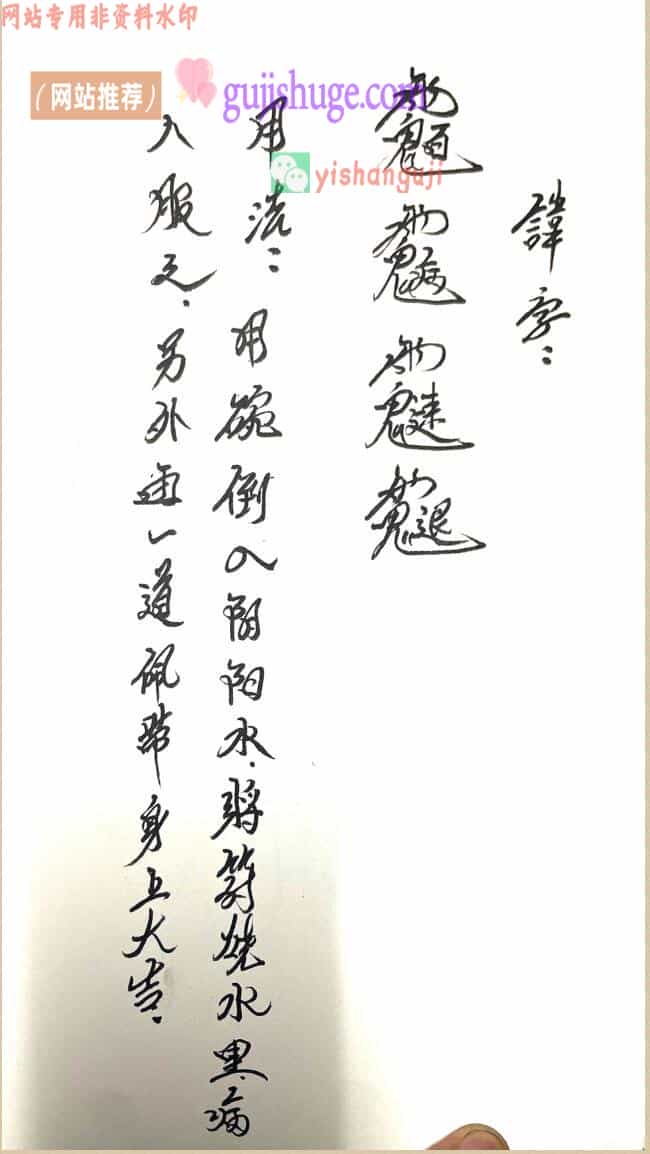 网站专用非资料水印
(网站推荐)
gujishuge.com
yishanguji
諱字:
用法:用碗倒入阴阳水.将符烧水里.病
人服之.另外画一道佩带身上大吉.